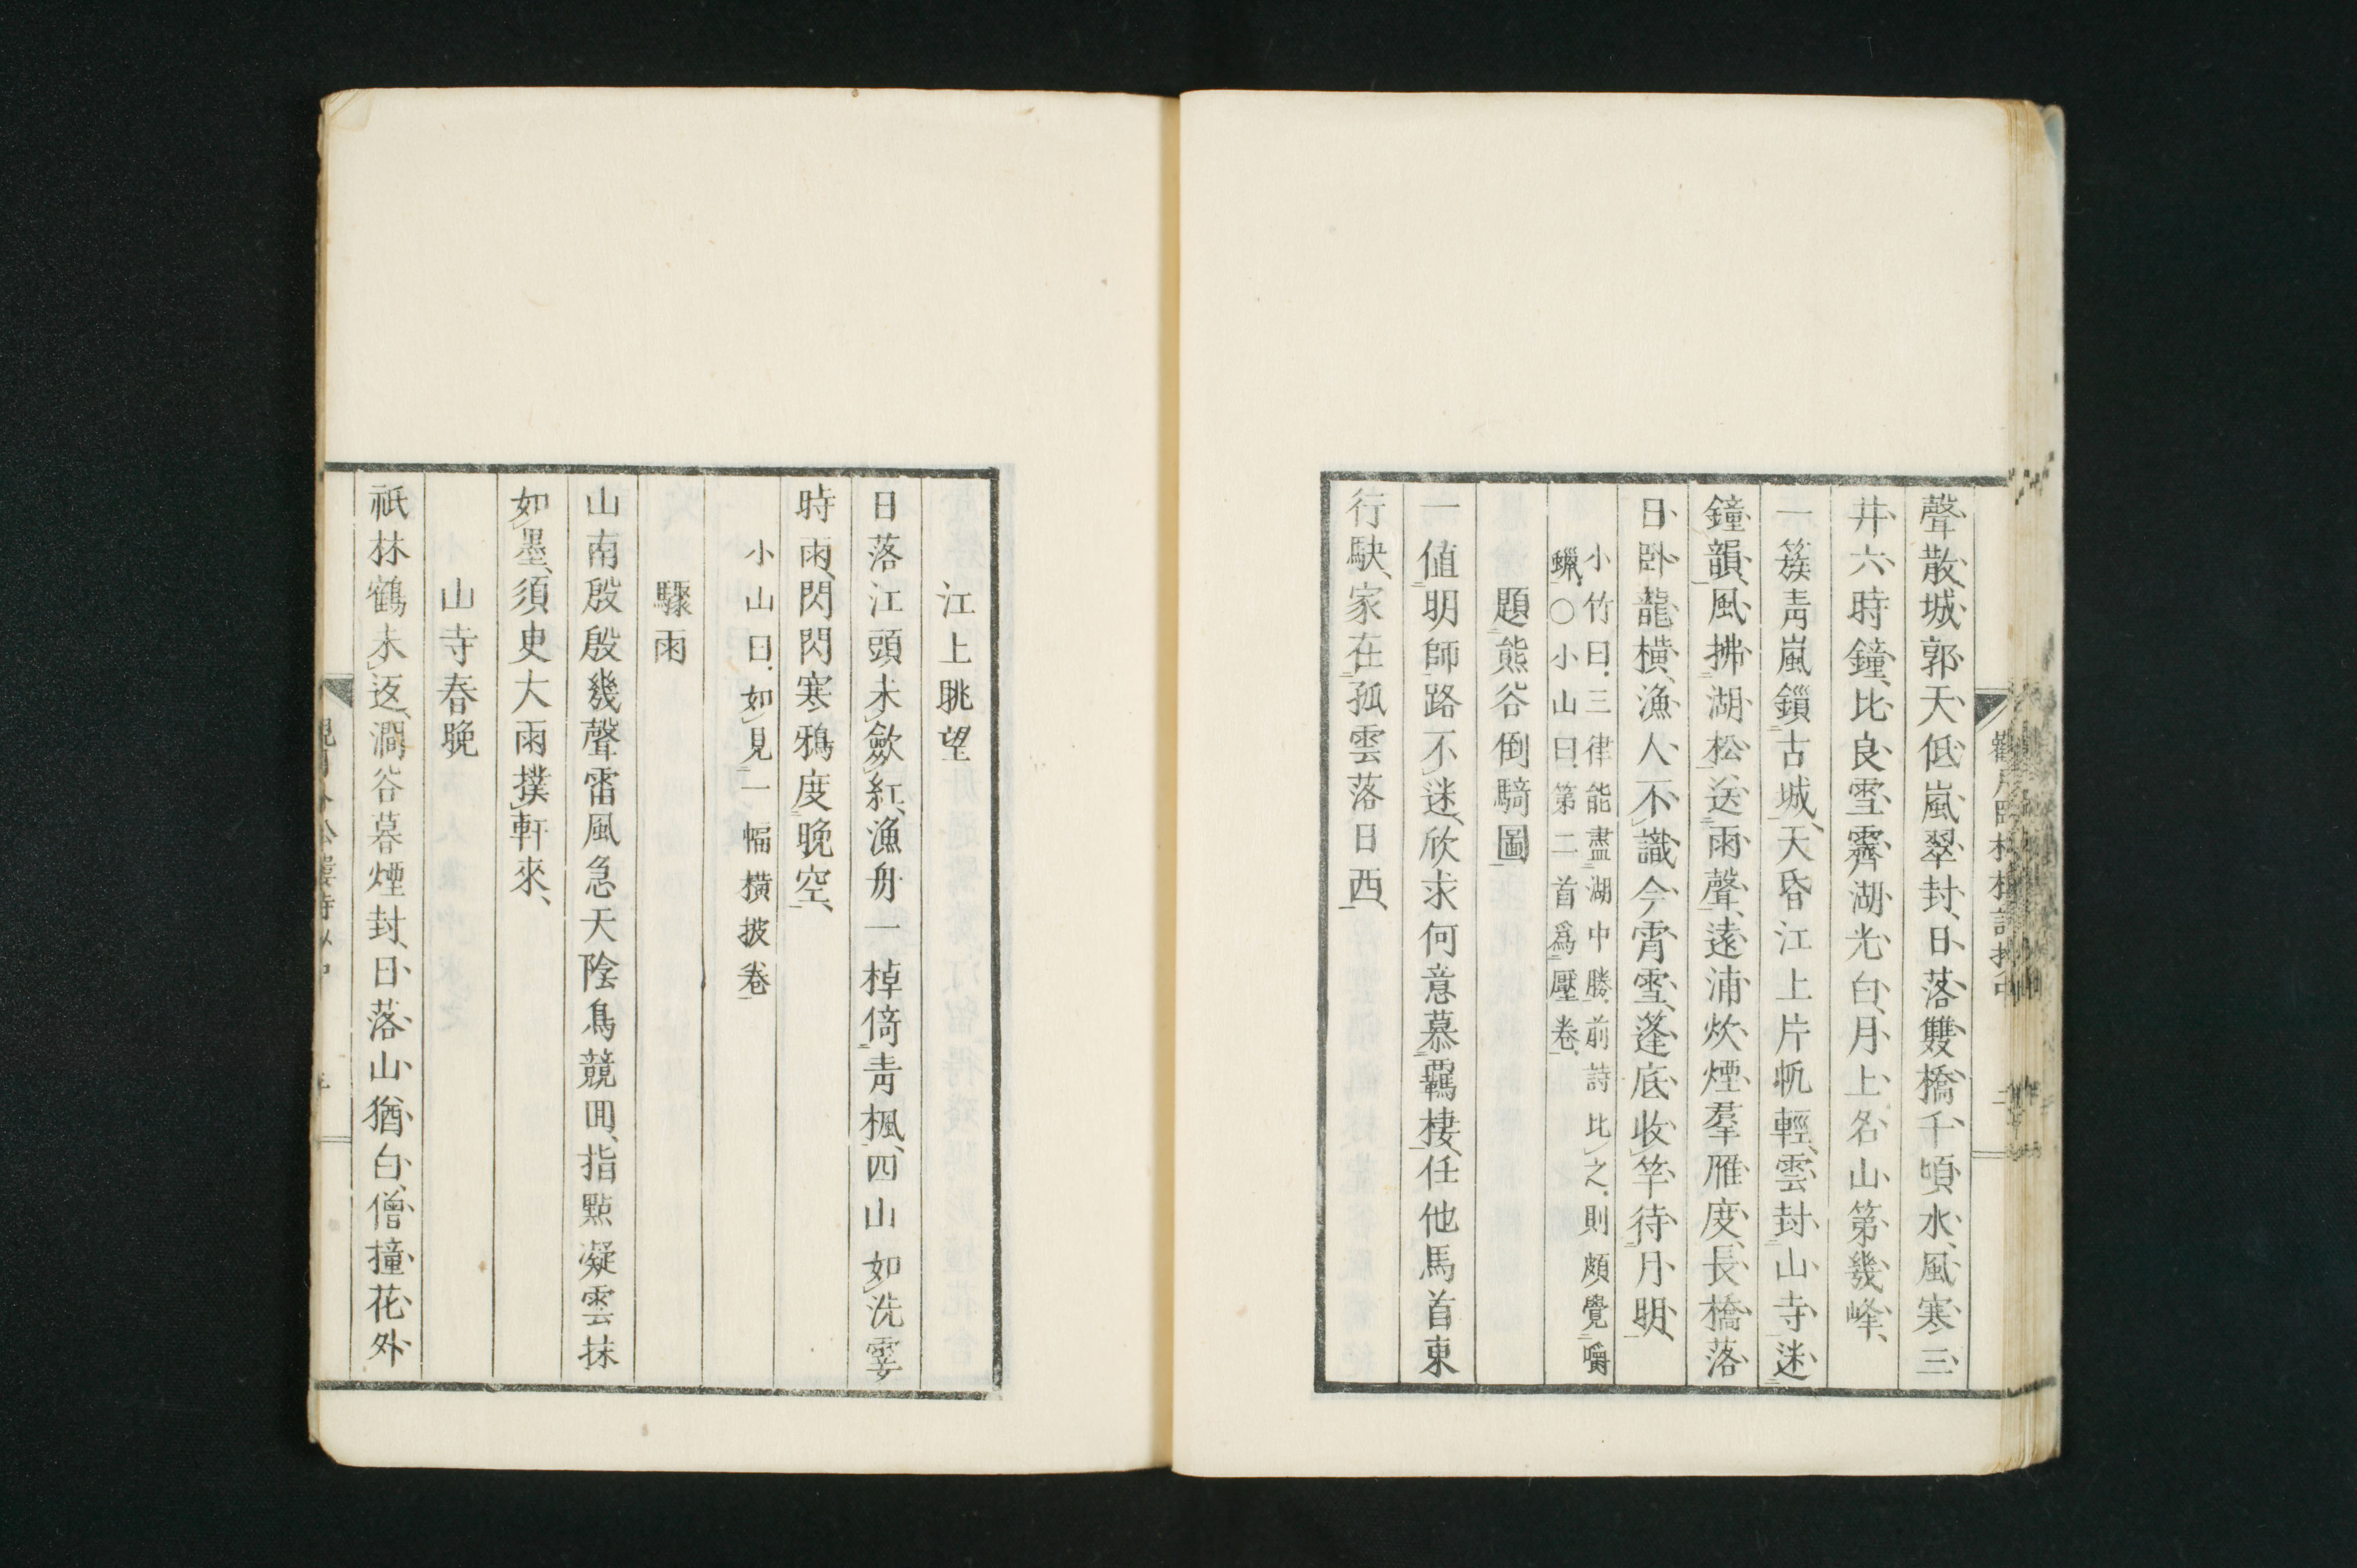 聲散、城郭天低嵐翠封、日落雙橋千頃水、風寒三
井六時鐘、比良雪霽湖光白、月上名山第幾峰、
一簇靑嵐鎖古城、天昏江上片帆輕、雲封山寺迷
鐘韻、風拂湖松送雨聲、遠浦炊煙羣雁度、長橋落
日臥龍橫、漁人不識今宵雪、蓬底收竿待月明、
小竹曰．三律能盡湖中勝．前詩比之．則頗覺嚼
蠟．〇小山曰．第二首爲壓卷．
題熊谷倒騎圖
一値明師路不迷、欣求何意慕羈棲、任他馬首東
行駃、家在孤雲落日西、
江上眺望
日落江頭未歛紅、漁舟一棹倚靑楓、四山如洗霎
時雨、閃閃寒鴉度晚空、
小山曰．如見一幅橫披卷
驟雨
山南殷殷幾聲雷風急天陰鳥競囘、指點凝雲抹
如墨、須臾大雨撲軒來、
山寺春晚
祇林鶴未返、澗谷暮煙封、日落山猶白、僧撞花外